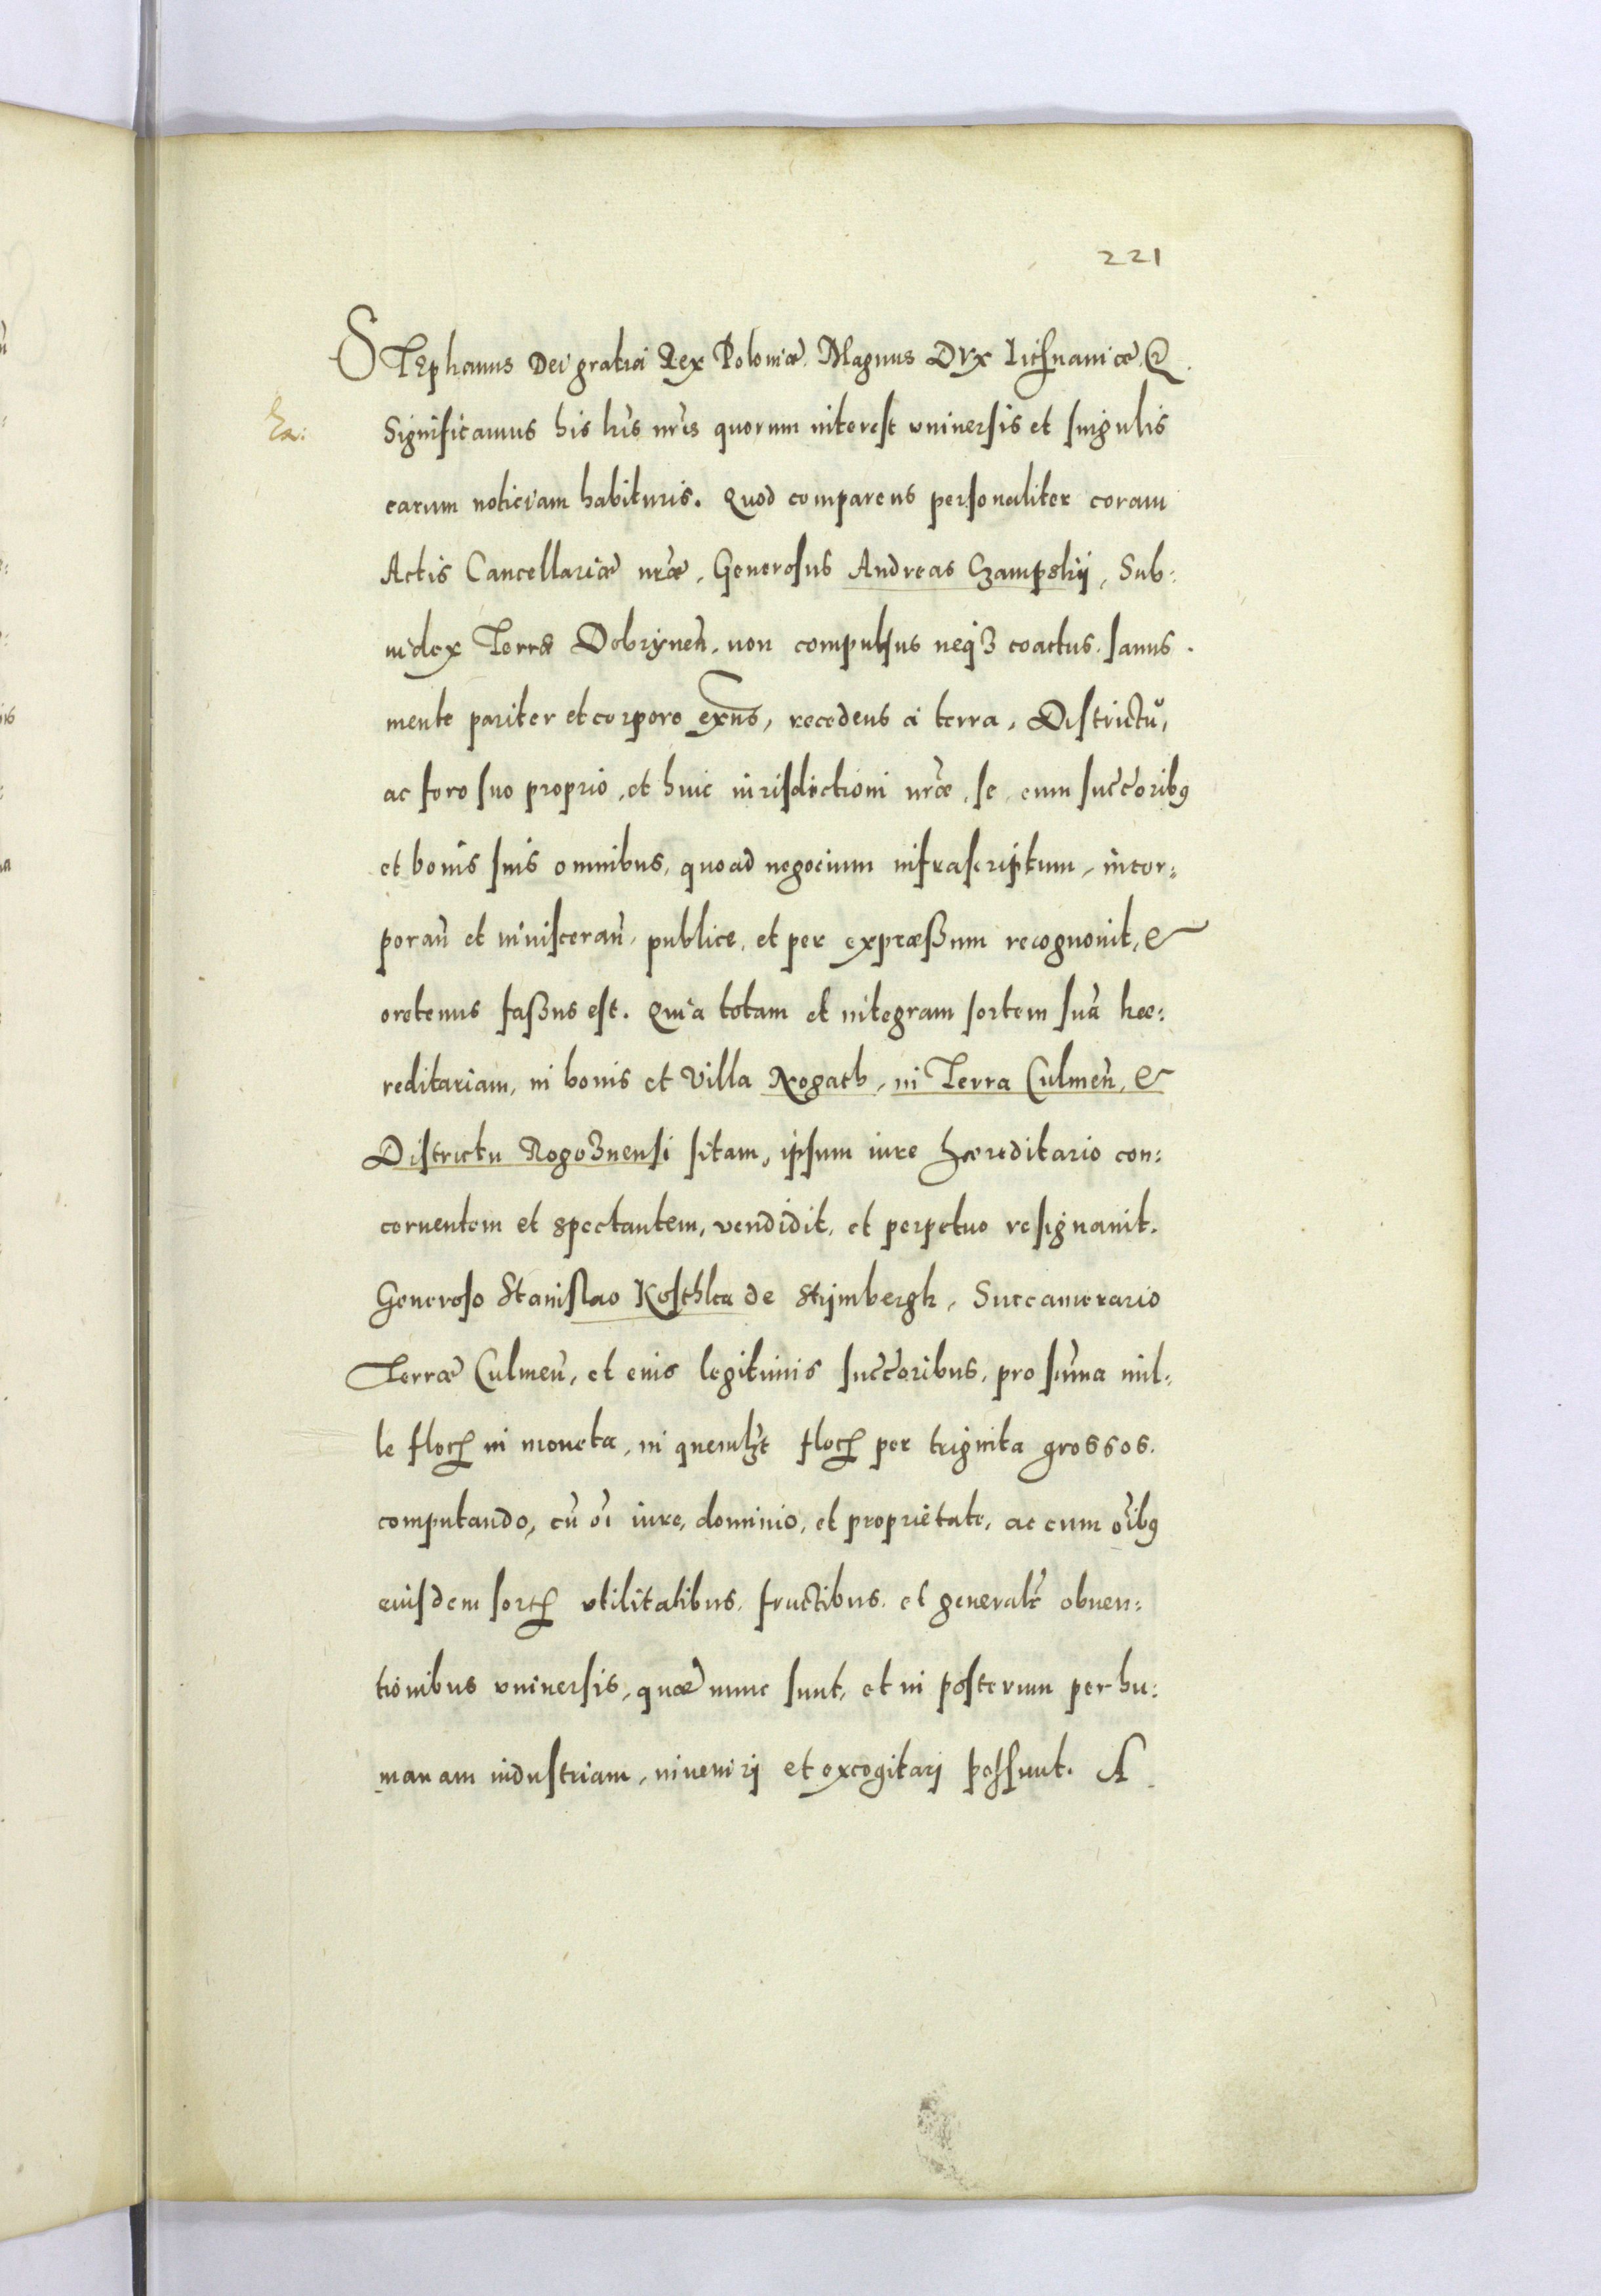 221
STEphanus Dei gratia Rex Poloniæ. Magnus DVx Lithuaniæ &.
Significamus his lr̃is nr̃is quorum interest vniuersis et singulis
earum noticiam habituris. Quod comparens personaliter coram
Actis Cancellariæ nr̃æ, Generosus Andreas Czampskij, Sub:
iudex Terræ Dobrÿneñ, non compulsus neqꝫ coactus, sanus
mente pariter et corpore exñs, recedens a terra, Districtu,
ac foro suo proprio, et huic iurisdictioni nr̃æ, se, cum succ̃oribꝰ
et bonis suis omnibus, quoad negocium infrascriptum, incor:
porañ et inuisceran̄, publice, et per expræßum recognouit, &
oretenus faßus est. Quia totam et integram sortem suã hæ:
reditariam, in bonis et Villa Nogath, in Terra Culmeñ, &
Districtu Rogoznensi sitam, ipsum iure hæreditario con:
cernentem et spectantem, vendidit, et perpetuo resignauit.
Generoso Stanislao Kosthka de Stÿmbergk, Succamerario
Terræ Culmeñ, et eius legitimis succ̃oribus, pro sum̃a mil:
le floꝝ in moneta, in quemlꝫt floꝝ per triginta grossos.
computando, cũ oĩ iure, dominio, et proprietate, ac cum oĩbꝰ
eiusdem sortꝭ vtilitatibus, fructibus, et generalr̃ obuen:
tionibus vniuersis, quæ nunc sunt, et in posterum per hu:
manam industriam, inuenirj et excogitarj possunt. A